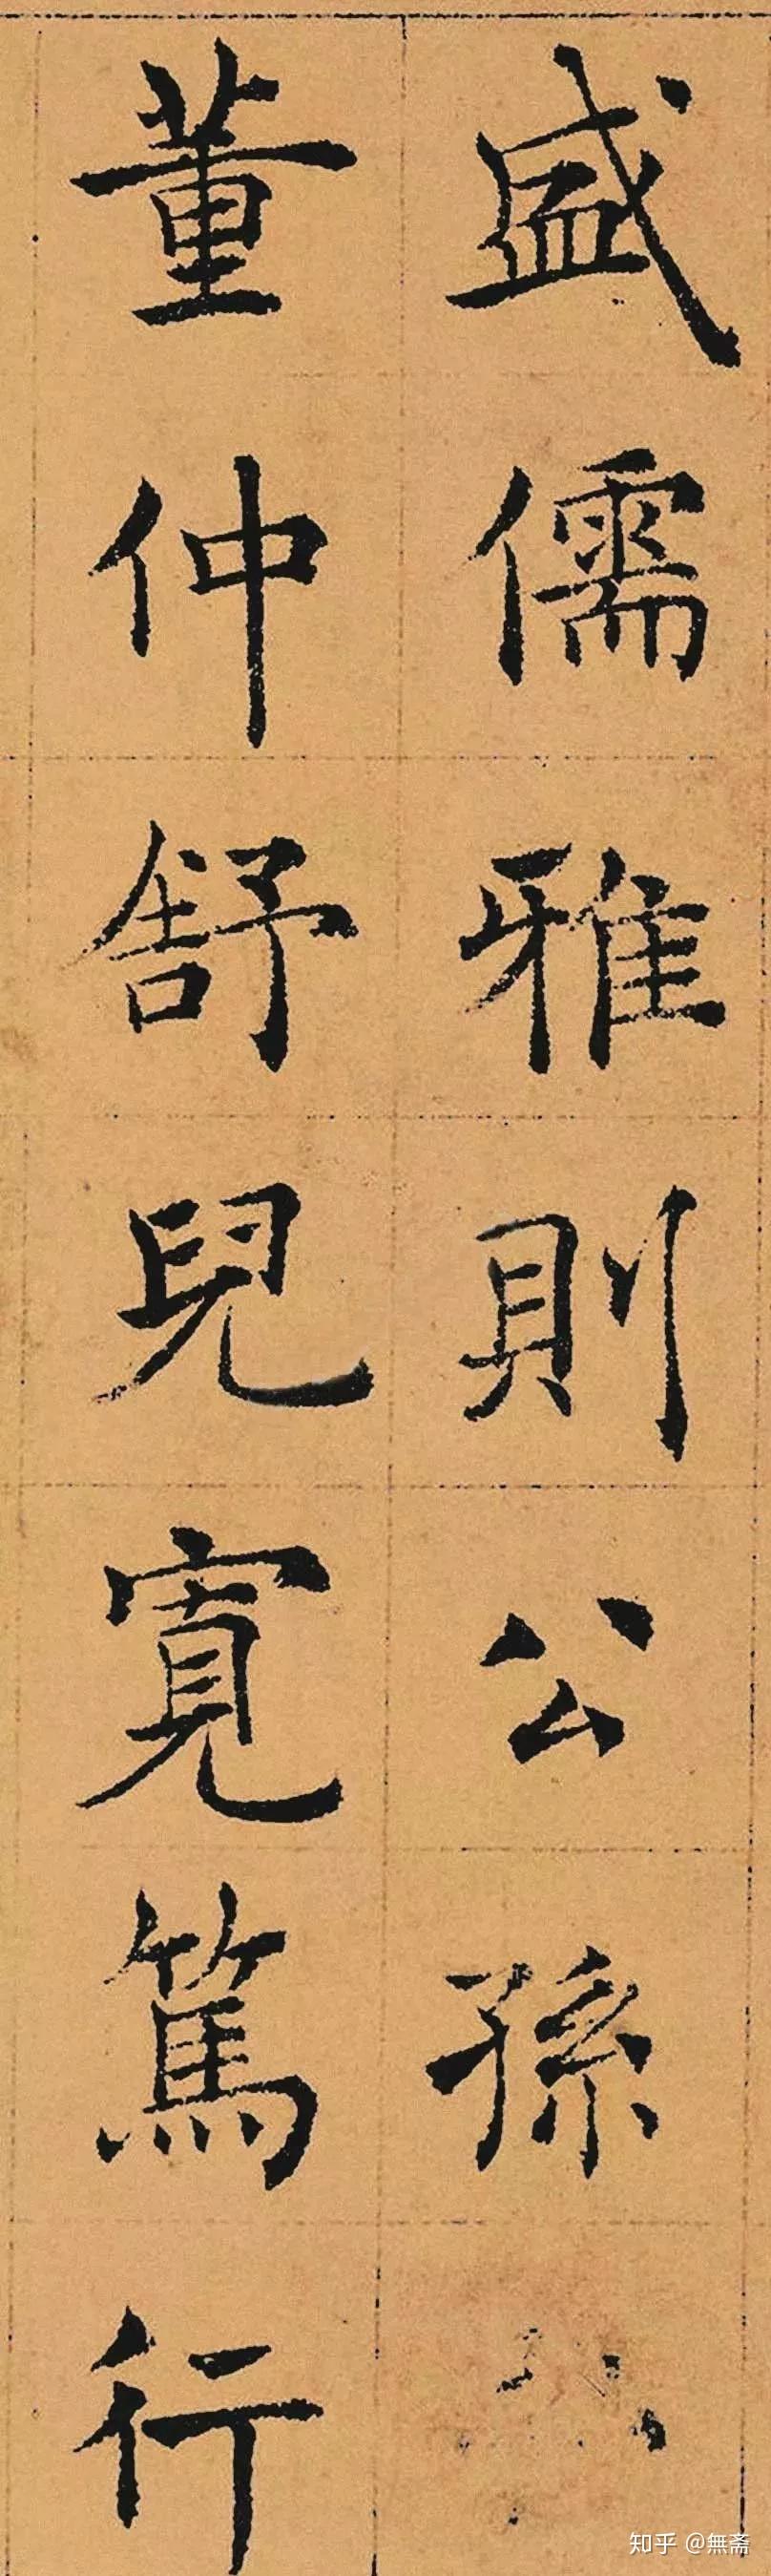 盛儒雅則公孫
董仲舒兒寬篤行
知乎 @無斋